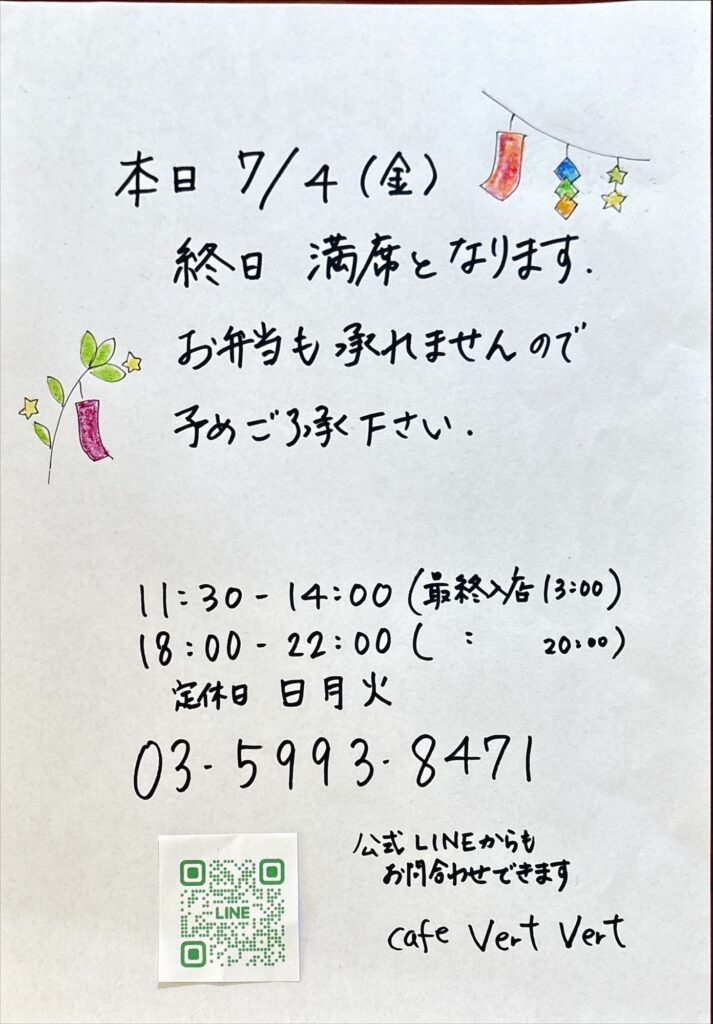 本日 7/4(金)
終日 満席となります.
お弁当も承れませんので
予めご了承く下さい.
11:30-14:00(最終入店13:00)
18:00-22:00( : 20:00)
定休日 日月火
03-5993-8471
公式LINEからも
お問合わせできます
LINE
cafe Vert Vert